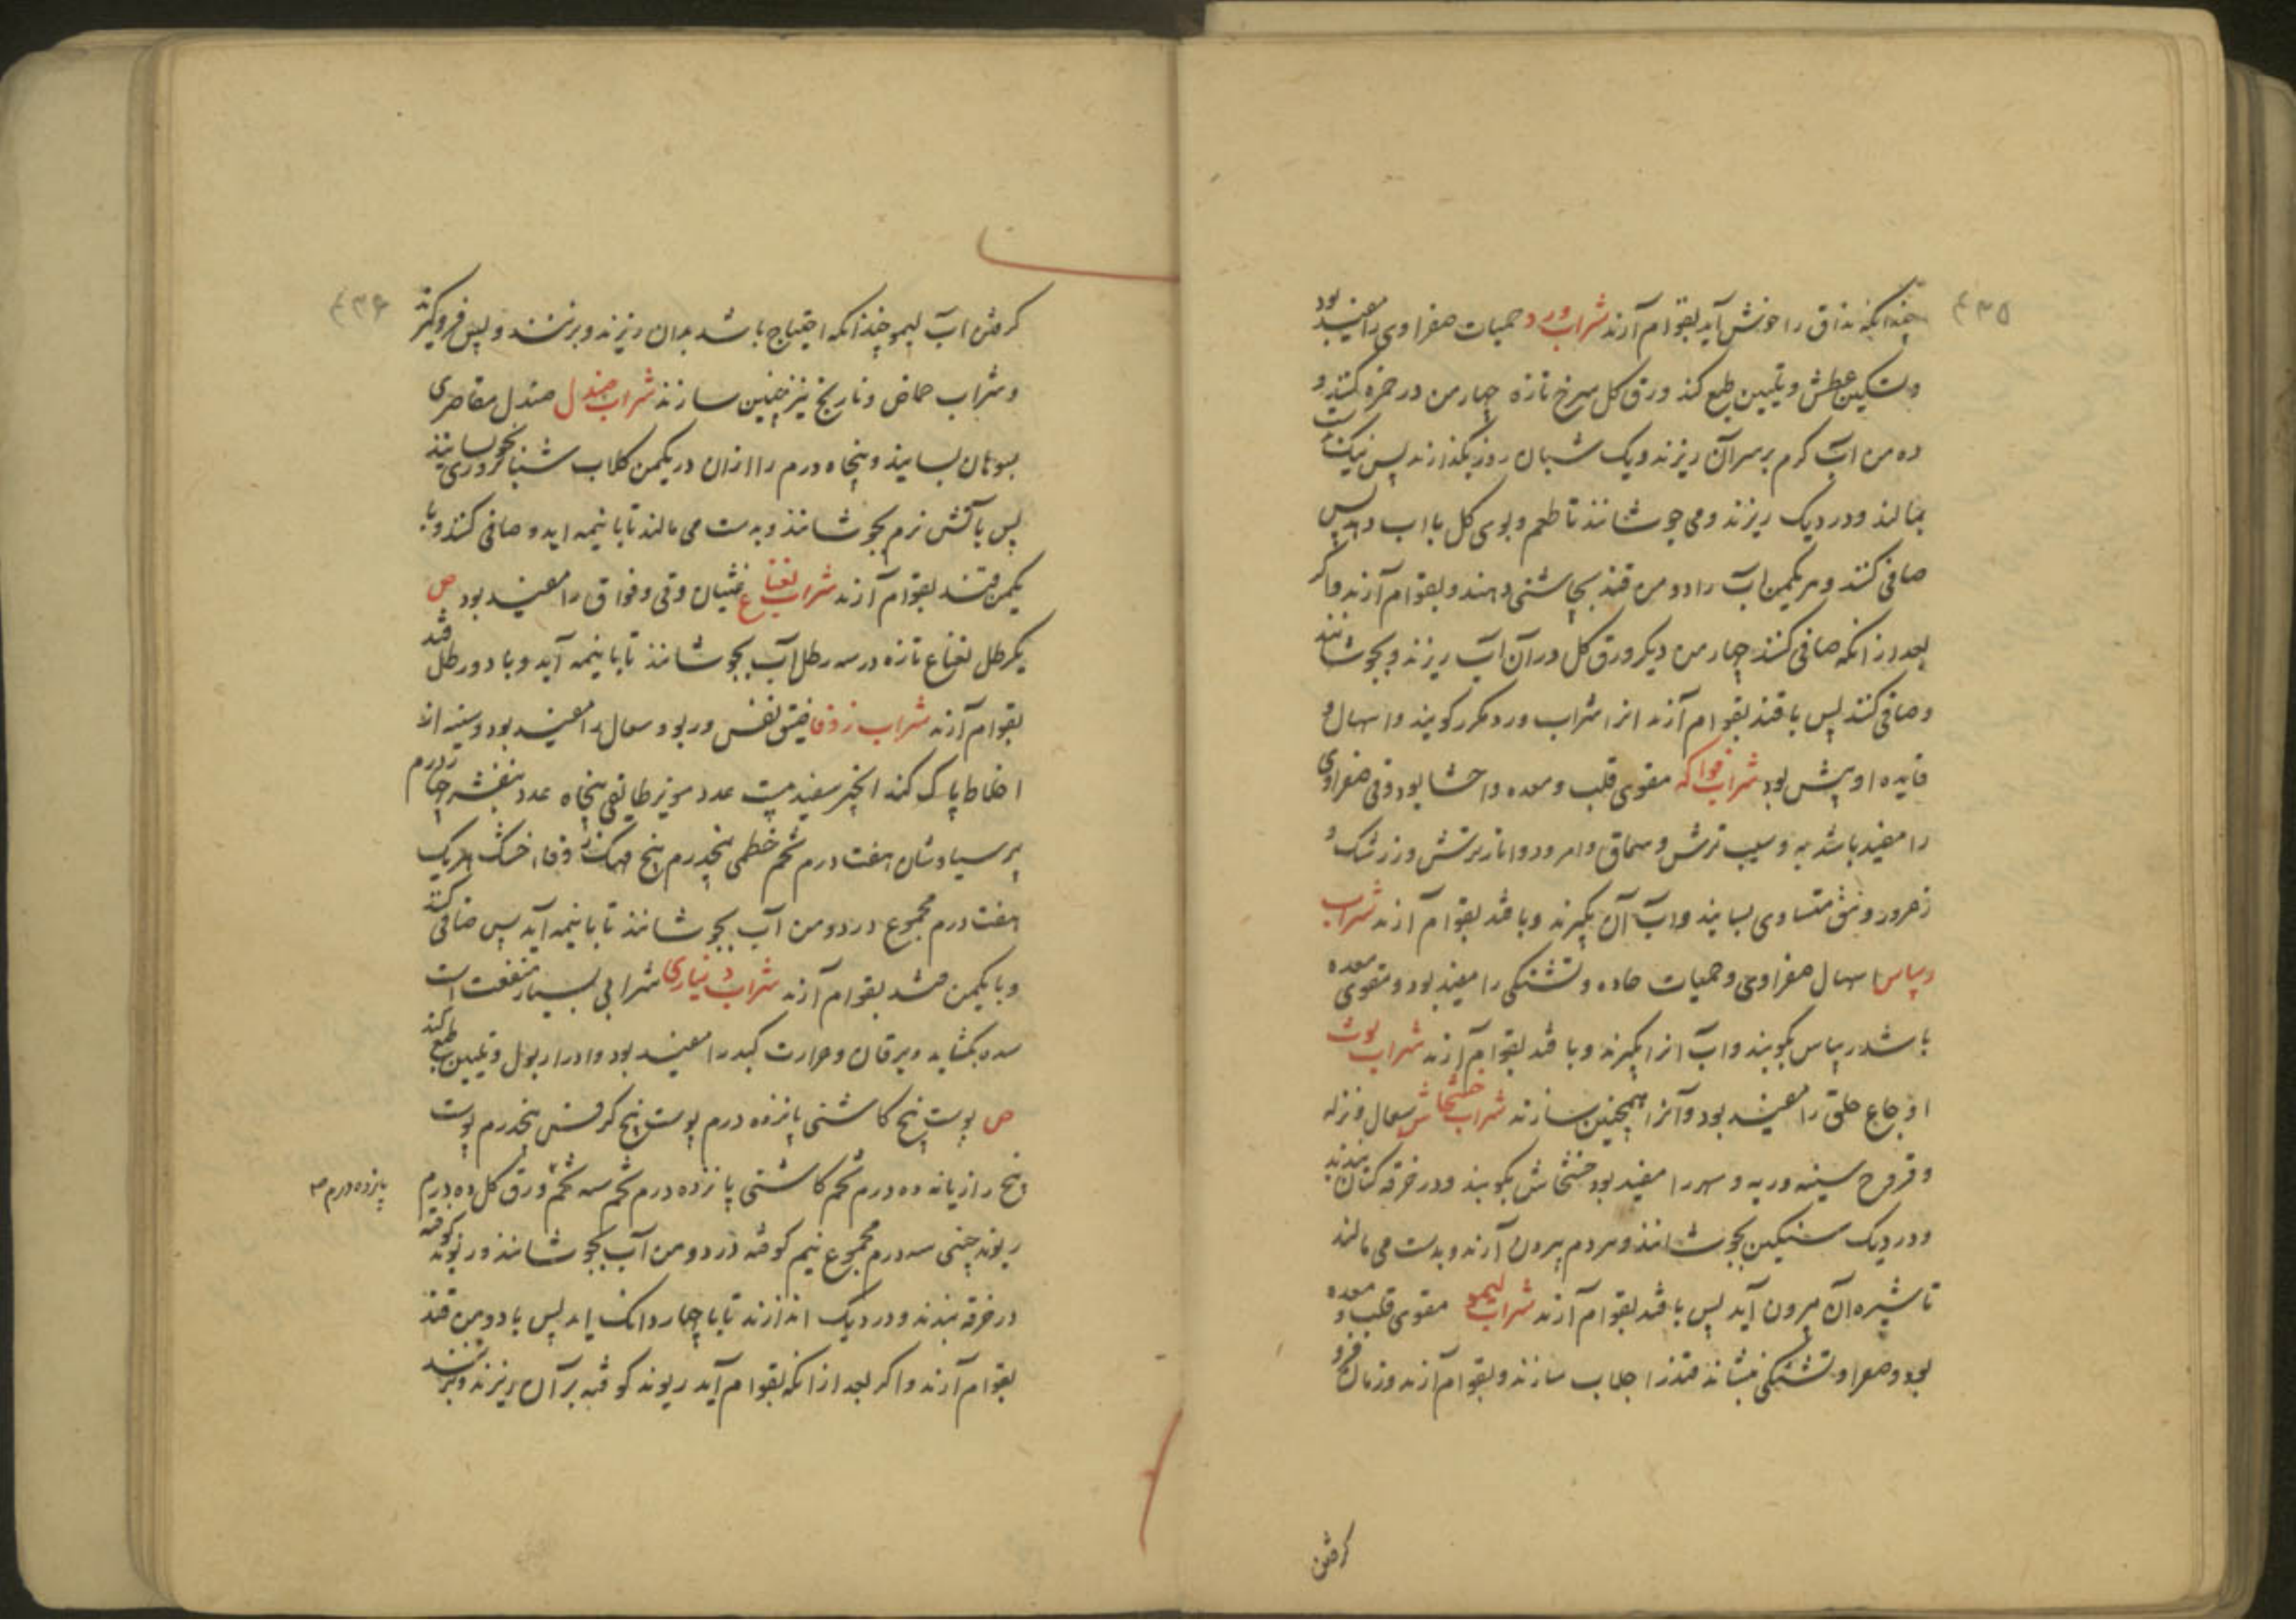 ۴۳۵
چندانکه مذاق را خوش آید بقوام آرند شراب ورد حمیات صفراوی را مفید بود
و تسکین عطش و تلیین طبع کند ورق کل سرخ تازه چهار من در خمره کنند و
ده من آب کرم بر سر آن ریزند و یک شبان روز بکذارند پس نیک بدست
بمالند و در دیک ریزند و می جوشانند تا طعم و بوی کل با اب دهد پس
صافی کنند و هر یکمن آب را دو من قند بچاشنی دهند و بقوام آرند و اکر
بعد از انکه صافی کنند چهار من دیکر ورق کل در آن آب ریزند و بجوشانند
و صافی کنند پس با قند بقوام آرند انرا شراب ورد مکرر کویند و اسهال و
فایده او بیش بود شراب فواکه مقوی قلب و معده و احشا بود و قی صفراوی
را مفید باشد به و سیب ترش و سماق و امرود و انار ترش و زرشک و
زعرور و نبق متساوی بسایند و آب آن بکیرند و با قند بقوام آرند شراب
ریباس اسهال صفراوی و حمیات حاده و تشنکی را مفید بود و مقوی معده
باشد ریباس بکوبند و آب انرا بکیرند و با قند بقوام آرند شراب توت
اوجاع حلق را مفید بود و آنرا همچنین سازند شراب خشخاش سعال و نزله
و قروح سینه و ریه و سهر را مفید بود خشخاش بکوبند و در خرقه کتان بندند
و در دیک سنکین بجوشانند و هر دم بیرون آرند و بدست می مالند
تا شیره آن بیرون آید پس با قند بقوام آرند شراب لیمو مقوی قلب و معده
بود و صفرا و تشنکی بنشاند قند را جلاب سازند و بقوام آرند و زمان فرو
کرفتن
۴۳۶
کرفتن آب لیمو چندانکه احتیاج باشد بدان ریزند و برنند و پس فرو کیرند
و شراب حماض و نارنج نیز چنین سازند شراب صندل صندل مقاصری
بسوهان بسایند و پنجاه درم را ازان در یکمن کلاب شبانروزی بخوسانند
پس بآتش نرم بجوشانند و بدست می مالند تا با نیمه اید و صافی کنند و با
یکمن قند بقوام آرند شراب نعناع غثیان و قی و فواق را مفید بود ص
یکرطل نعناع تازه در سه رطل آب بجوشانند تا با نیمه آید و با دو رطل قند
بقوام آرند شراب زوفا ضیق نفس و ربو و سعال را مفید بود و سینه از
اخلاط پاک کند انجیر سفید بیست عدد مویز طایفی پنجاه عدد بنفشه چهار درم
پرسیاوشان هفت درم تخم خطمی پنجدرم بیخ مهک زوفاء خشک هریک
هفت درم مجموع در دو من آب بجوشانند تا با نیمه آید پس صافی کنند
و با یکمن قند بقوام آرند شراب دیناری شرابی بسیار منفعت است
سده بکشاید و یرقان و حرارت کبد را مفید بود و ادرار بول و تلیین طبع کند
ص پوست بیخ کاسنی پانزده درم پوست بیخ کرفس پنجدرم پوست
بیخ رازیانه ده درم تخم کاسنی پانزده درم تخم سه تخم ورق کل ده درم
پانزده درم
ریوند چینی سه درم مجموع نیم کوفته در دو من آب بجوشانند و ریوند کوفته
در خرقه بندند و در دیک اندازند تا با چهار دانک اید پس با دو من قند
بقوام آرند و اکر بعد از انکه بقوام آید ریوند کوفته بر آن ریزند و برنند